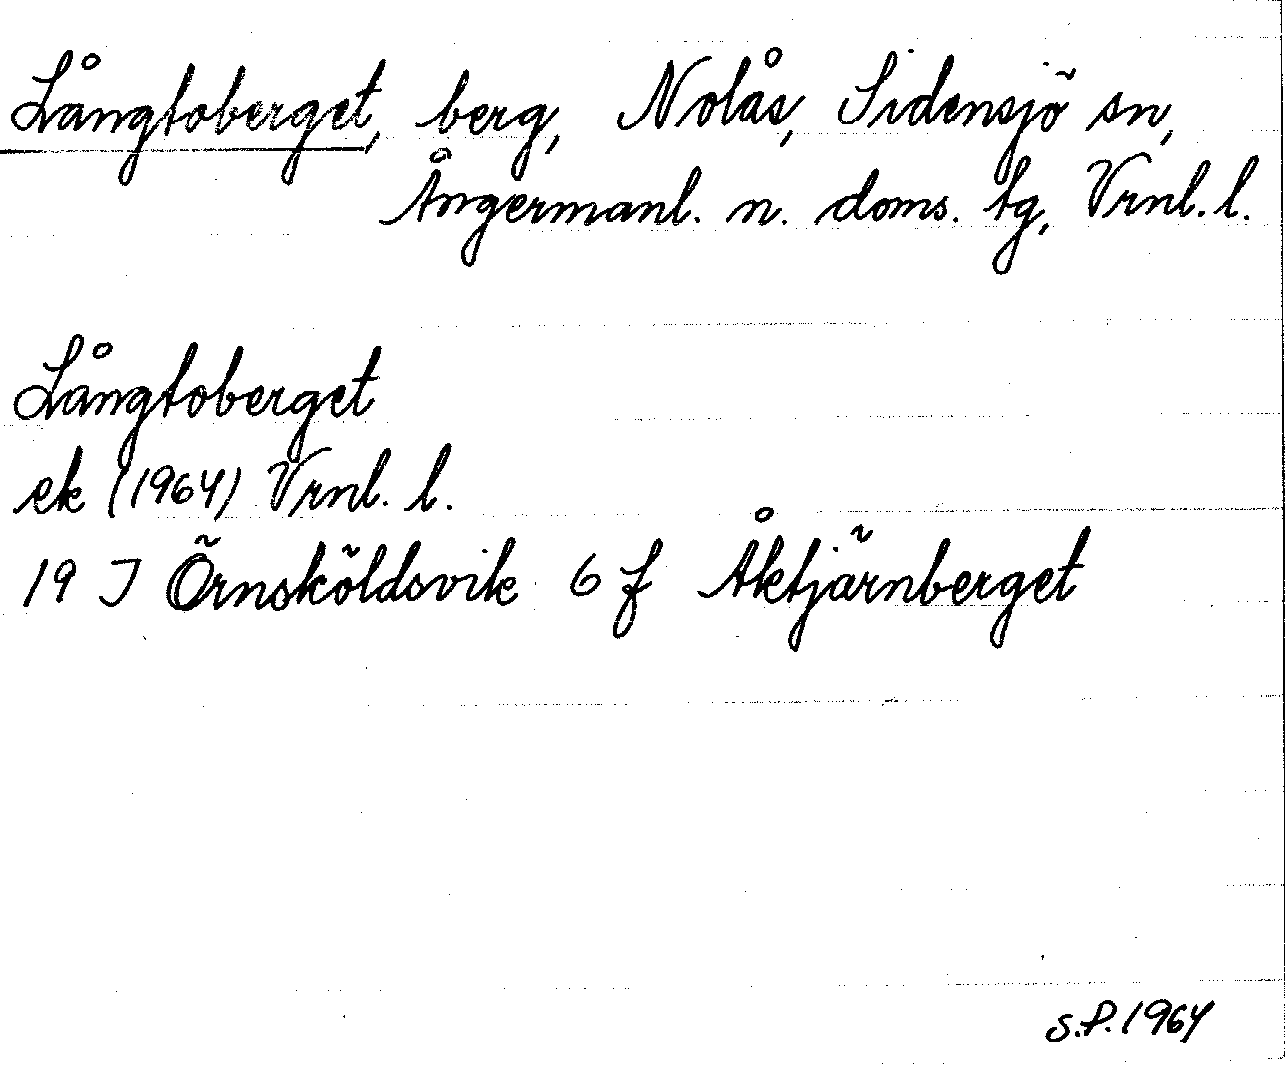 Långtoberget, berg, Nolås, Sidensjö sn,
Ångermanl. n. doms. tg, Vrnl. l.
Långtoberget
ek (1964) Vrnl. l.
19 J Örnsköldsvik 6 f Åktjärnberget
S.P. 1964